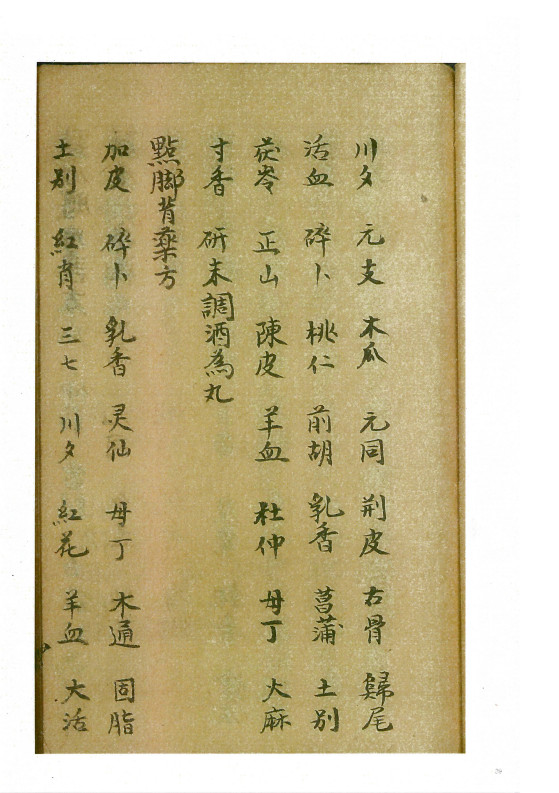 川夕 元支 木瓜 元同 荆皮 古骨 歸尾
活血 碎卜 桃仁 前胡 乳香 菖蒲 土别
茯苓 正山 陳皮 羊血 杜仲 母丁 大麻
寸香 研末調酒為丸
點脚背藥方
加皮 碎卜 乳香 灵仙 母丁 木通 固脂
土别 紅肖 三七 川夕 紅花 羊血 大活